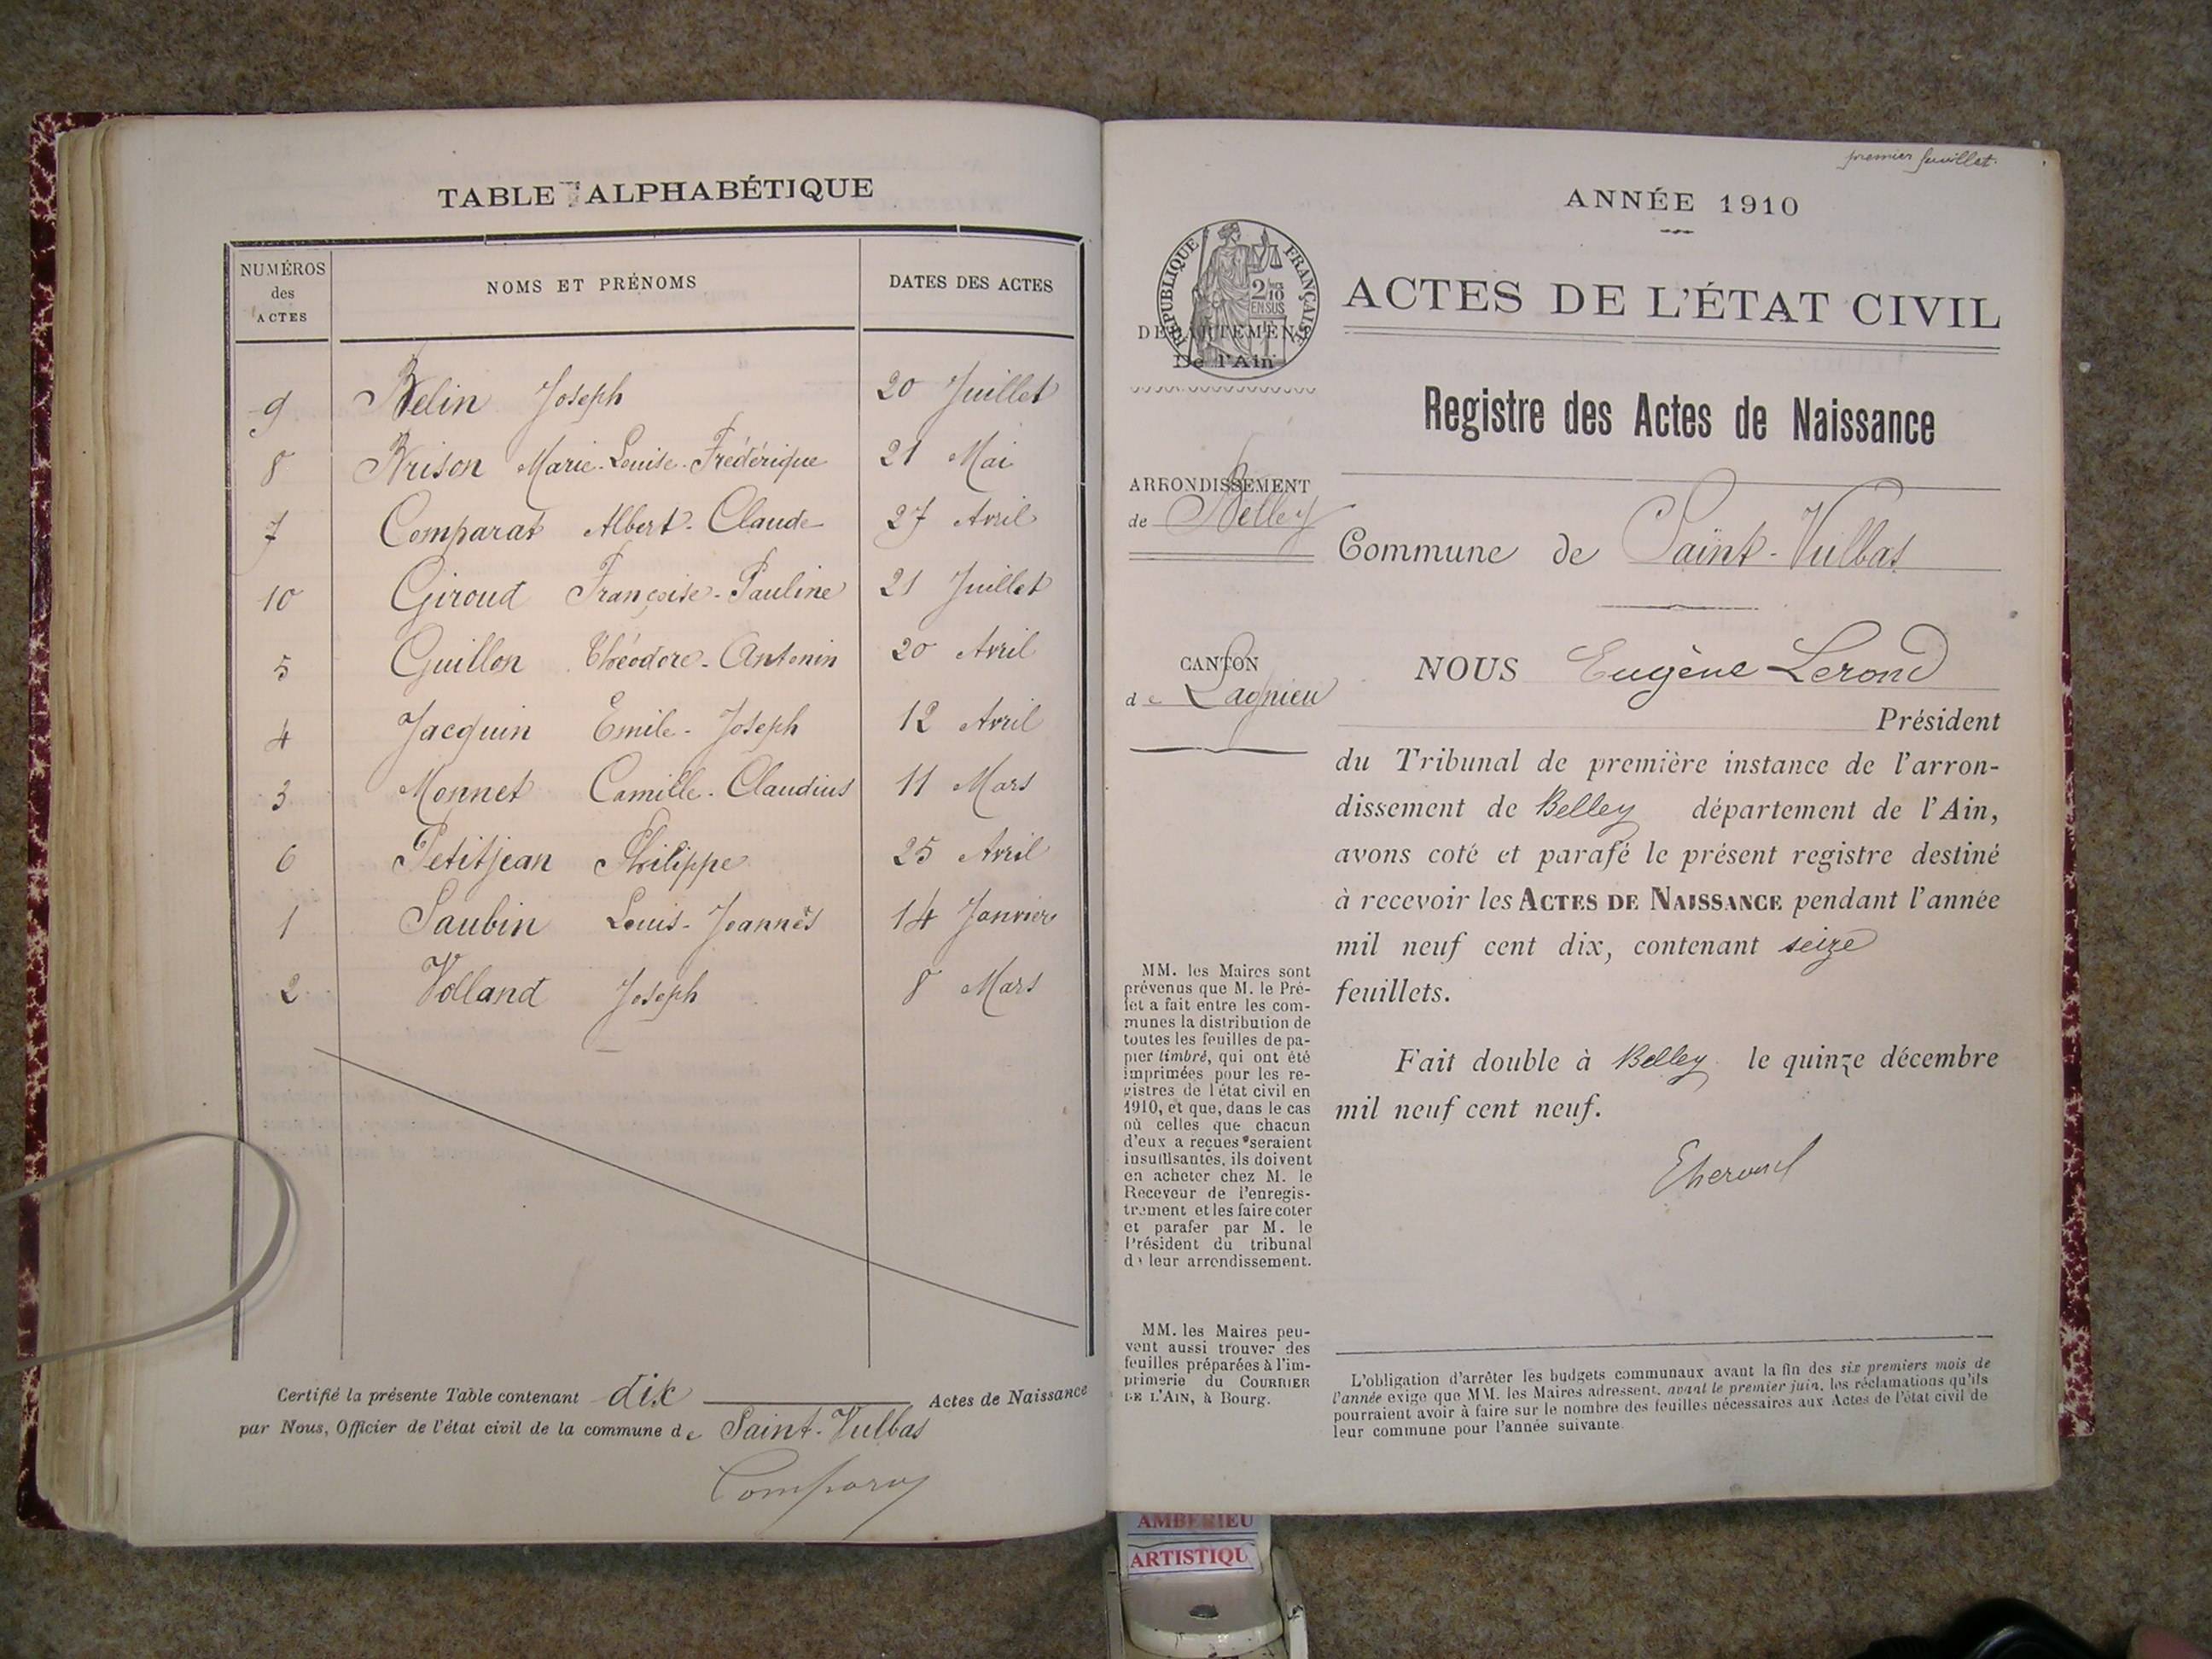 TABLE ALPHABÉTIQUE
NUMÉROS des ACTES NOMS ET PRÉNOMS DATES DES ACTES
9 Belin Joseph 20 Juillet
8 Brison Marie-Louise-Frédérique 21 Mai
7 Comparat Albert-Claude 27 Avril
10 Giroud Françoise-Pauline 21 Juillet
5 Guillon Théodore-Antonin 20 Avril
4 Jacquin Emile-Joseph 12 Avril
3 Monnet Camille-Claudius 11 Mars
6 Petitjean Philippe 25 Avril
1 Saubin Louis-Joannès 14 Janvier
2 Volland Joseph 8 Mars
Certifié la présente Table contenant dix Actes de Naissance
par Nous, Officier de l'état civil de la commune de Saint-Vulbas
premier feuillet.
ANNÉE 1910
RÉPUBLIQUE FRANÇAISE
2/10
EN SUS
DÉPARTEMENT
De l'Ain
ACTES DE L'ÉTAT CIVIL
Registre des Actes de Naissance
ARRONDISSEMENT
de Belley
Commune de Saint-Vulbas
CANTON
de Lagnieu
NOUS Eugène Lerond
Président
du Tribunal de première instance de l'arron-
dissement de Belley département de l'Ain,
avons coté et parafé le présent registre destiné
à recevoir les ACTES DE NAISSANCE pendant l'année
mil neuf cent dix, contenant seize
feuillets.
Fait double à Belley le quinze décembre
mil neuf cent neuf.
MM. les Maires sont
prévenus que M. le Pré-
fet a fait entre les com-
munes la distribution de
toutes les feuilles de pa-
pier timbré, qui ont été
imprimées pour les re-
gistres de l'état civil en
1910, et que, dans le cas
où celles que chacun
d'eux a reçues seraient
insuffisantes, ils doivent
en acheter chez M. le
Receveur de l'enregis-
trement et les faire coter
et parafer par M. le
Président du tribunal
de leur arrondissement.
MM. les Maires peu-
vent aussi trouver des
feuilles préparées à l'im-
primerie du COURRIER
DE L'AIN, à Bourg.
L'obligation d'arrêter les budgets communaux avant la fin des six premiers mois de
l'année exige que MM. les Maires adressent, avant le premier juin, les réclamations qu'ils
pourraient avoir à faire sur le nombre des feuilles nécessaires aux Actes de l'état civil de
leur commune pour l'année suivante.
AMBERIEU
ARTISTIQU